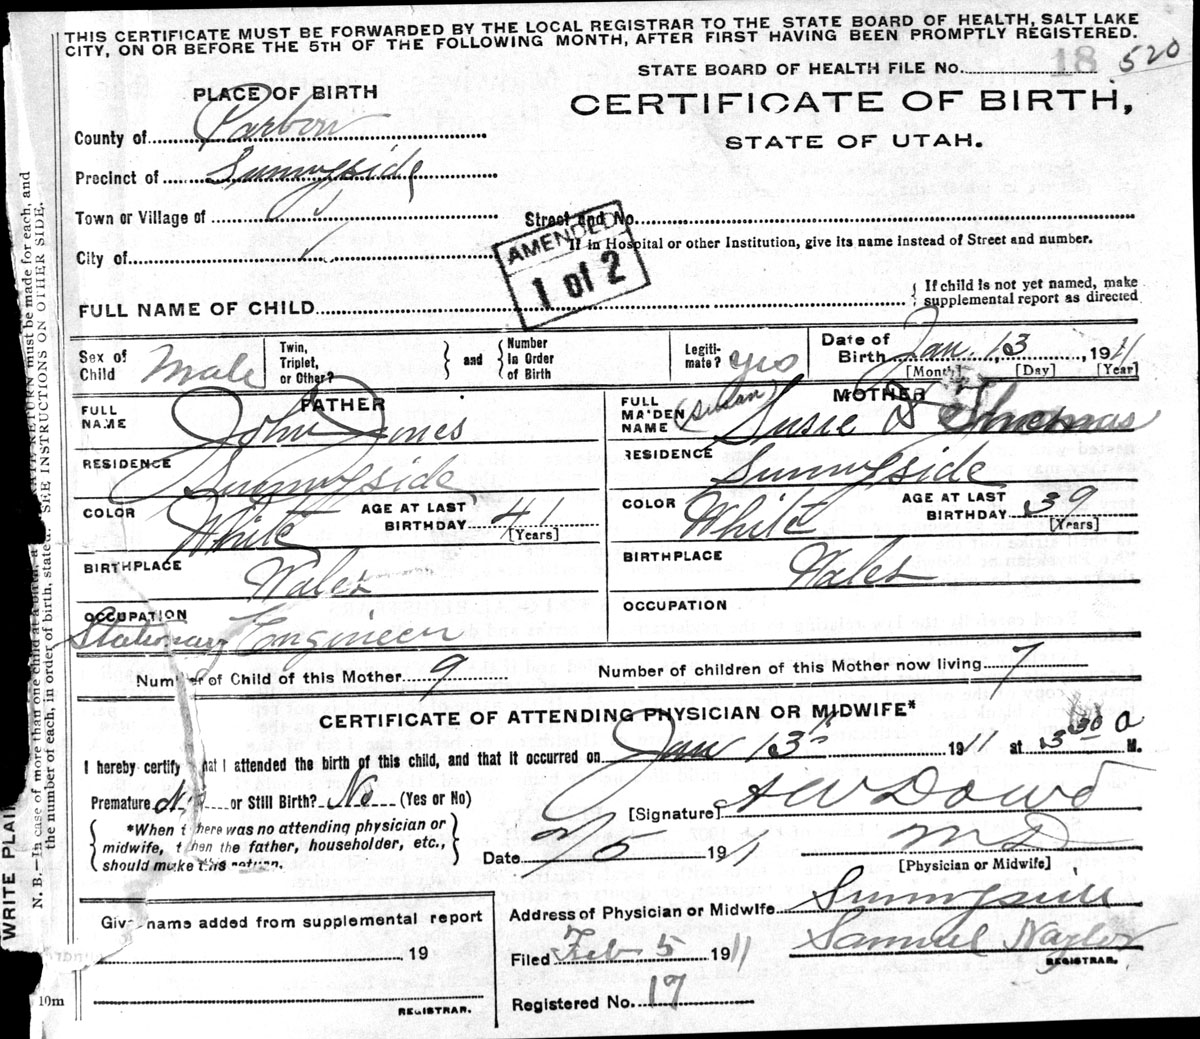 THIS CERTIFICATE MUST BE FORWARDED BY THE LOCAL REGISTRAR TO THE STATE BOARD OF HEALTH, SALT LAKE
CITY, ON OR BEFORE THE 5TH OF THE FOLLOWING MONTH, AFTER FIRST HAVING BEEN PROMPTLY REGISTERED.
STATE BOARD OF HEALTH FILE No. 18 520
PLACE OF BIRTH
CERTIFICATE OF BIRTH,
STATE OF UTAH.
County of Carbon
Precinct of Sunnyside
Town or Village of
Street and No.
If in Hospital or other Institution, give its name instead of Street and number.
City of
AMENDED
1 of 2
FULL NAME OF CHILD
{ If child is not yet named, make
supplemental report as directed
Sex of Child Male
Twin, Triplet, or Other? } and { Number In Order of Birth
Legiti-mate? yes
Date of Birth Jan. 13, 1911
[Month] [Day] [Year]
FATHER
FULL NAME John Jones
RESIDENCE Sunnyside
COLOR White AGE AT LAST BIRTHDAY 41
[Years]
BIRTHPLACE Wales
OCCUPATION
Stationary Engineer
MOTHER
FULL MAIDEN NAME (Susan) Susie D Thomas
RESIDENCE Sunnyside
COLOR White AGE AT LAST BIRTHDAY 39
[Years]
BIRTHPLACE Wales
OCCUPATION
Number of Child of this Mother 9 Number of children of this Mother now living 7
CERTIFICATE OF ATTENDING PHYSICIAN OR MIDWIFE*
I hereby certify that I attended the birth of this child, and that it occurred on Jan 13th 1911 at 3 30 a M.
Premature No or Still Birth? No (Yes or No)
[Signature] A W Dowd
{ *When there was no attending physician or
midwife, then the father, householder, etc.,
should make this return. }
Date 1911
M D
[Physician or Midwife]
Given name added from supplemental report
19
REGISTRAR.
Address of Physician or Midwife Sunnyside
Filed Feb 5 1911 Samuel Naylor
REGISTRAR.
Registered No. 17
10m
WRITE PLAIN
N. B.—In case of more than one child at a birth, a SEPARATE RETURN must be made for each, and
the number of each, in order of birth, stated. SEE INSTRUCTIONS ON OTHER SIDE.